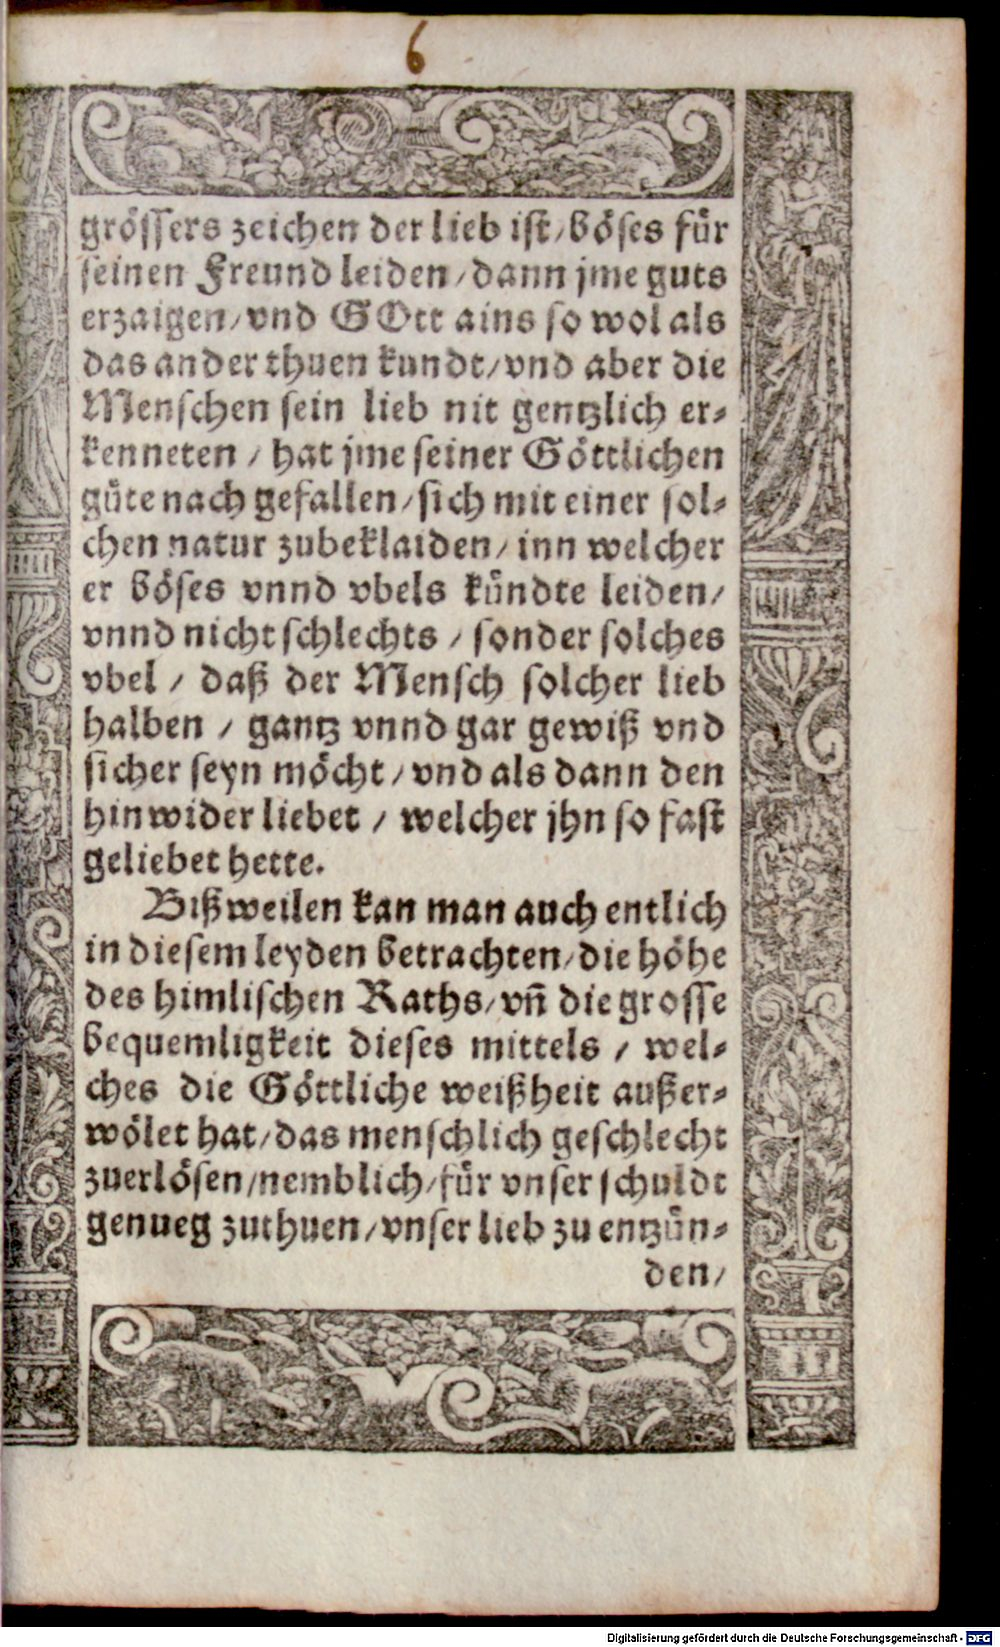 6
grössers zeichen der lieb ist/ böses für
seinen Freund leiden/ dann jme guts
erzaigen/ vnd GOtt ains so wol als
das ander thuen kundt/ vnd aber die
Menschen sein lieb nit gentzlich er-
kenneten / hat jme seiner Göttlichen
güte nach gefallen/ sich mit einer sol-
chen natur zubeklaiden/ inn welcher
er böses vnnd vbels kündte leiden/
vnnd nicht schlechts / sonder solches
vbel / daß der Mensch solcher lieb
halben / gantz vnnd gar gewiß vnd
sicher seyn möcht/ vnd als dann den
hinwider liebet / welcher jhn so fast
geliebet hette.
Bißweilen kan man auch entlich
in diesem leyden betrachten/ die höhe
des himlischen Raths/ vñ die grosse
bequemligkeit dieses mittels / wel-
ches die Göttliche weißheit außer-
wölet hat/ das menschlich geschlecht
zuerlösen/ nemblich/ für vnser schuldt
genueg zuthuen/ vnser lieb zu entzün-
den/
Digitalisierung gefördert durch die Deutsche Forschungsgemeinschaft - DFG